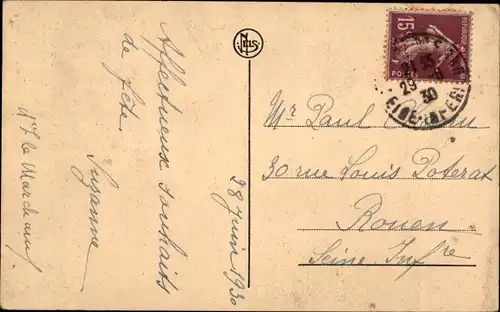 Affectueux souhaits
de fête.
Suzanne
28 Juin 1930
NELS
15
POSTES
29
30
Mr Paul
30 rue Louis Poterat
Rouen
Seine Infre